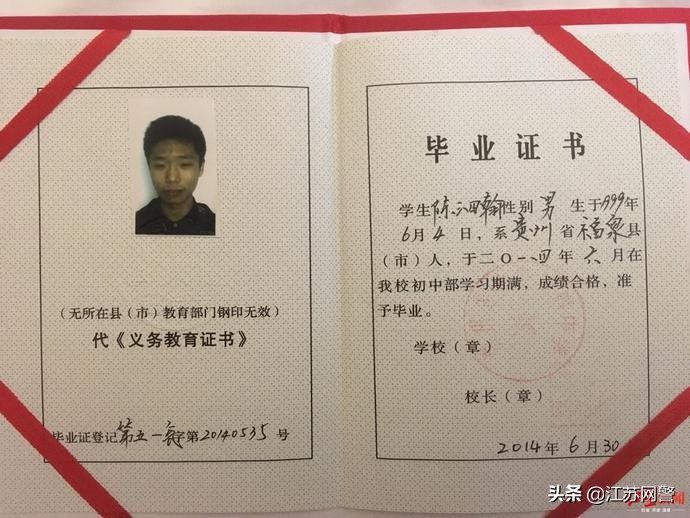 (无所在县(市)教育部门钢印无效)
代《义务教育证书》
毕业证登记第五一 字第20140535号
毕业证书
学生陈泗翰性别男 生于1999年
6月4日,系贵州省福泉县
(市)人,于二〇一四年六月在
我校初中部学习期满,成绩合格,准
予毕业。
学校(章)
校长(章)
2014年6月30
头条 @江苏网警